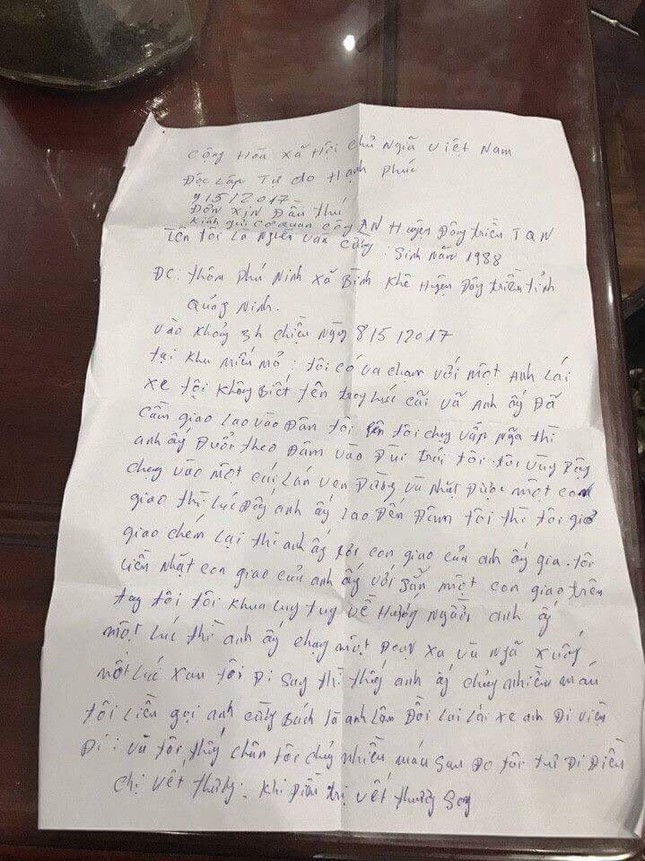 Cộng Hòa Xã Hội Chủ Nghĩa Việt Nam
Độc Lập Tự do Hạnh phúc
9/5/2017
Đơn Xin Đầu thú
Kính gửi cơ quan công AN Huyện Đông triều TQN
Tên tôi là Nguyễn Văn Cường : Sinh năm 1988
ĐC : thôn Phú Ninh Xã Bình Khê Huyện Đông triều tỉnh
Quảng Ninh.
Vào khoảng 3h chiều ngày 8/5/2017
tại khu miếu mỏ : tôi có va chạm với một Anh lái
xe tôi không biết tên trong lúc cãi vã Anh ấy Đã
cầm giao lao vào Đâm tôi lên tôi chạy vấp ngã thì
anh ấy Đuổi theo Đâm vào Đùi trái tôi. tôi vùng Dậy
chạy vào một cái Lán ven Đường và nhặt Được một con
giao thì lúc Đấy anh ấy lao Đến Đâm tôi thì tôi giơ
giao chém lại thì anh ấy rơi con giao của anh ấy gia. tôi
liền nhặt con giao của anh ấy với sẵn một con giao trên
tay tôi tôi khua lung tung về Hướng người anh ấy
một lúc thì anh ấy chạy một Đoạn xa và ngã xuống
một lúc xau tôi Đi sang thì thấy anh ấy chảy nhiều máu
tôi liền gọi anh cùng Bách là anh Lâm Đồi lai lái xe anh Đi viện
Đi : và tôi, thấy chân tôi chảy nhiều máu sau Đó tôi tự Đi Điều
chị vết thương. khi Điều trị vết thương song